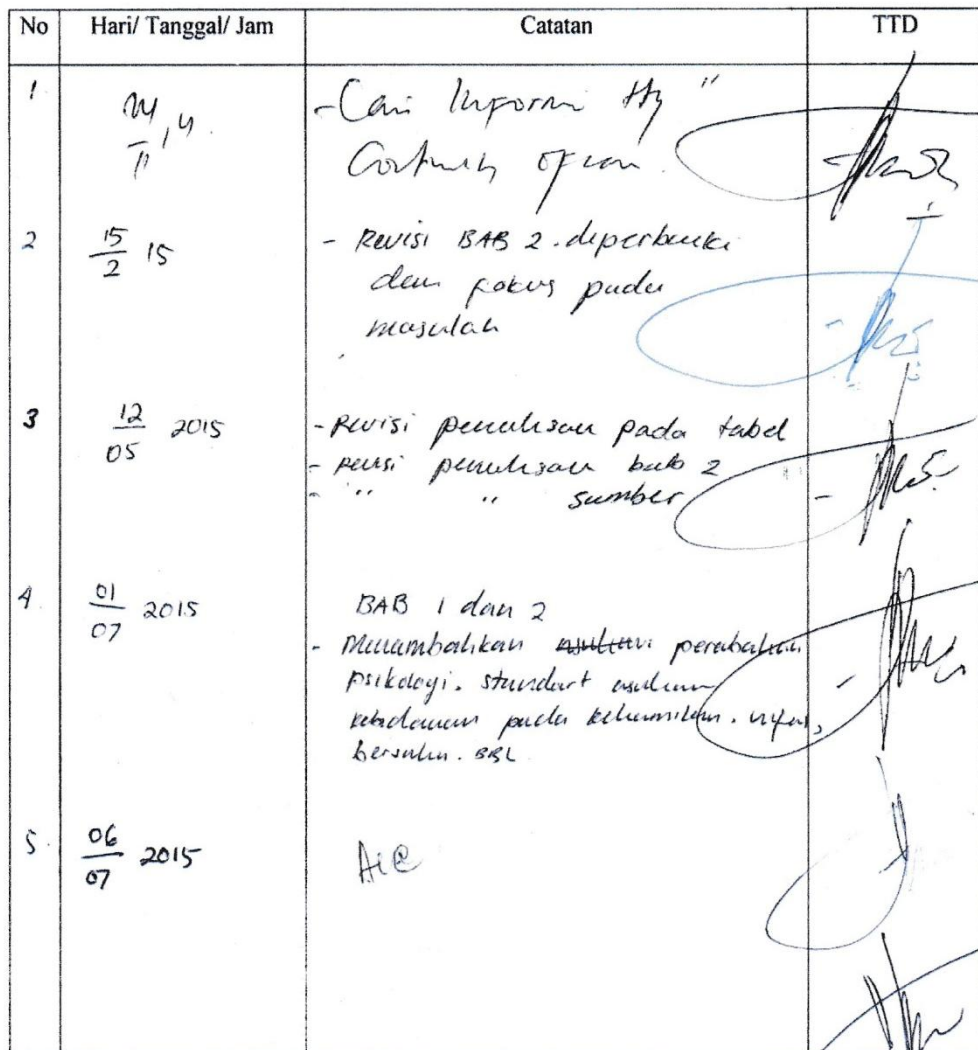 No Hari/ Tanggal/ Jam Catatan TTD
1 - Cari Inform ttg "
Continuity of care
2 15/2 15 - Revisi BAB 2. diperbaiki
dan fokus pada
masalah
3 12/05 2015 - Revisi penulisan pada tabel
- Revisi penulisan bab 2
- " " sumber
4. 01/07 2015 BAB 1 dan 2
- Menambahkan perubahan
psikologi. standart asuhan
kebidanan pada kehamilan. nifas,
bersalin. BBL
5. 06/07 2015